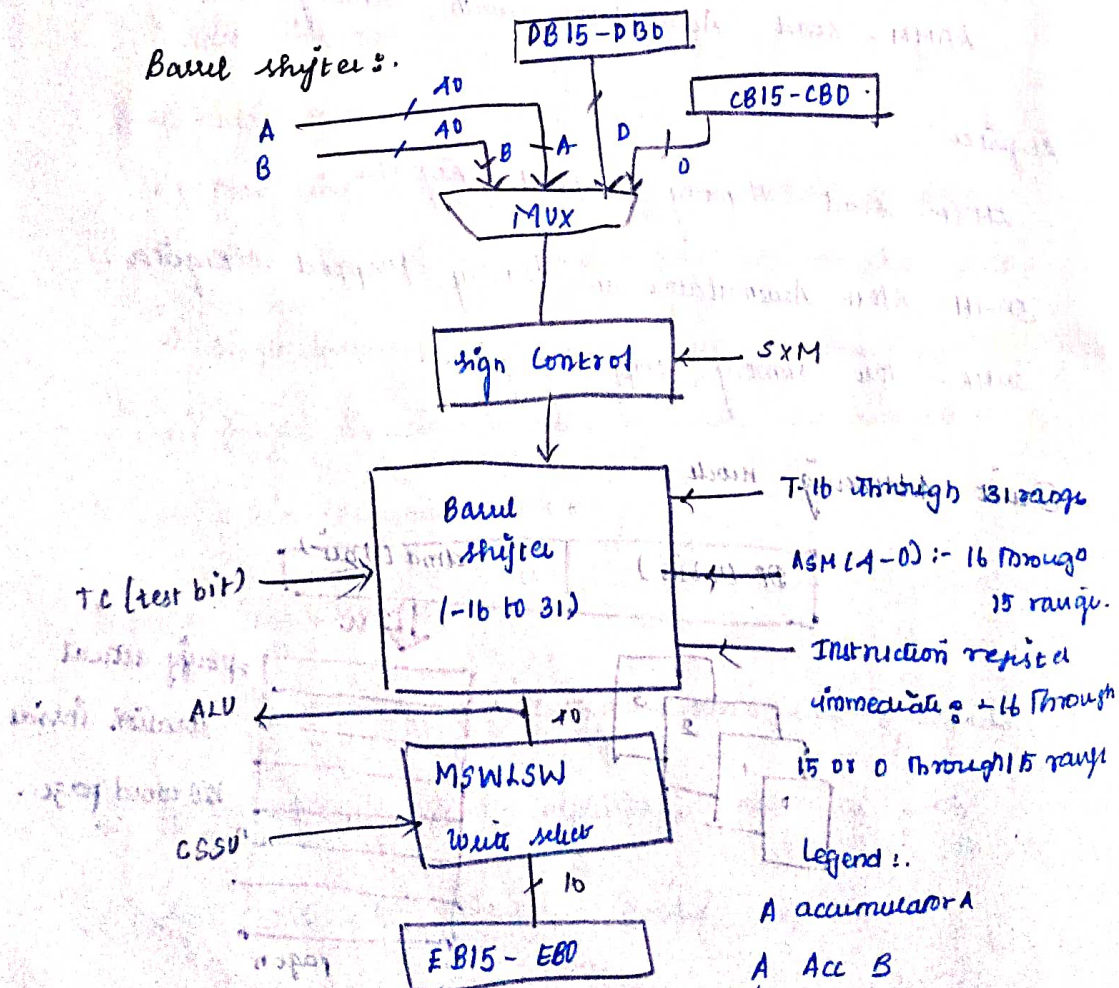 DB15-DB0
Barrel shifter:.
CB15-CBD.
A
40
B
40
B
A
D
D
MUX
Sign Control
SXM
Barrel
shifter
(-16 to 31)
T-16 through 31 range
ASM (4-0) :- 16 Through
15 range.
TC (test bit)
Instruction register
immediate: -16 Through
15 or 0 Through 15 range
ALU
40
MSWLSW
Write select
CSSU
10
EB15 - EBO
Legend :.
A accumulator A
A Acc B